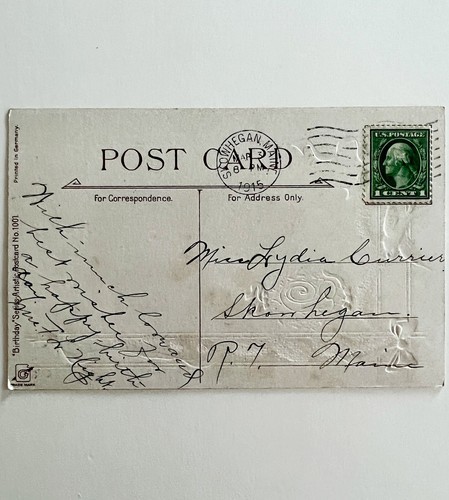 Printed in Germany.
"Birthday" Series Artistic Postcard No. 1001.
TRADE MARK
POST CARD
For Correspondence.
For Address Only.
SKOWHEGAN, MAINE
MAR
8 PM
1915
U.S. POSTAGE
1 CENT 1
With much love and
best wishes for
a happy birth
Miss Lydia Currier
Skowhegan.
Maine